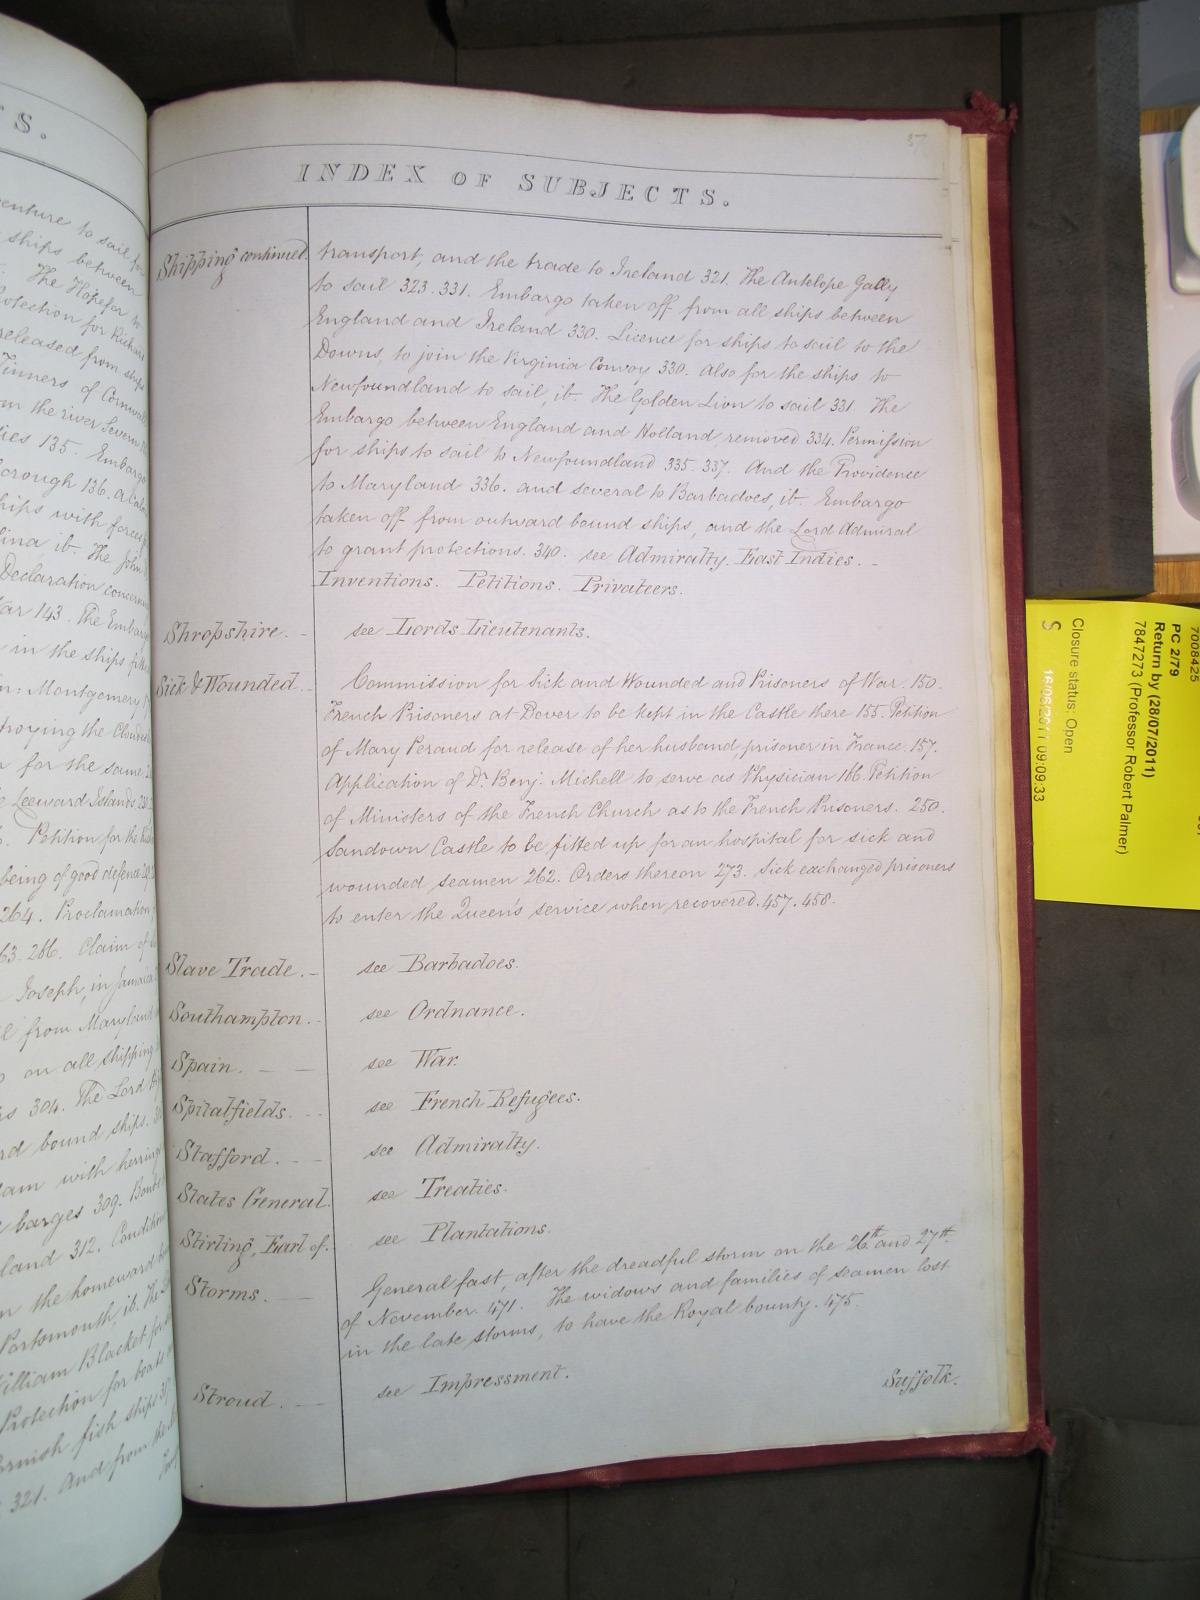 TS.
venture to sail for
ships between
The Hopefor to
protection for Richard
released from ships
Tinners of Cornwall
the river Severn
135. Embargo
136.
ships with
ib. The John
Declaration concern
War 143. The Embargo
in the ships
Montgomery
for the same
Leeward Islands
Petition for the
being of good defence
264. Proclamation
63. 286. Claim of
Joseph, in Jamaica
from Maryland
on all shipping
304. The Lord
bound ships.
with herrings
barges 309.
land 312.
the homeward
Portsmouth, ib.
William Blacket for
Protection for boats
fish ships
321. And from the
37
INDEX OF SUBJECTS.
Shipping continued
transport, and the trade to Ireland 321. The Antelope Gally
to sail 323. 331. Embargo taken off from all ships between
England and Ireland 330. Licence for ships to sail to the
Downs, to join the Virginia Convoy 330. Also for the ships to
Newfoundland to sail, ib. The Golden Lion to sail 331. The
Embargo between England and Holland, removed 334. Permission
for ships to sail to Newfoundland 335. 337. And the Providence
to Maryland 336. and several to Barbadoes, ib. Embargo
taken off from outward bound ships, and the Lord Admiral
to grant protections. 340. see Admiralty. East Indies. -
Inventions. Petitions. Privateers.
Shropshire. - see Lords Lieutenants.
Sick & Wounded. - Commission for Sick and Wounded and Prisoners of War. 150.
French Prisoners at Dover to be kept in the Castle there 155. Petition
of Mary Peraud for release of her husband, prisoner in France. 157.
Application of Dr. Benj: Michell to serve as Physician 166. Petition
of Ministers of the French Church as to the French Prisoners. 250.
Sandown Castle to be fitted up for an hospital for sick and
wounded seamen 262. Orders thereon 273. Sick exchanged prisoners
to enter the Queen's service when recovered. 457. 458.
Slave Trade. - see Barbadoes.
Southampton. - see Ordnance.
Spain. - - see War.
Spitalfields. - see French Refugees.
Stafford. - - see Admiralty.
States General. see Treaties.
Stirling, Earl of. see Plantations.
Storms. - General fast, after the dreadful storm on the 26th and 27th
of November. 471. The widows and families of seamen lost
in the late storms, to have the Royal bounty. 475.
Stroud. - see Impressment.
Suffolk.
7008425
PC 2/79
Return by (28/07/2011)
7847273 (Professor Robert Palmer)
Closure status: Open
S 16/06/2011 09:09:33